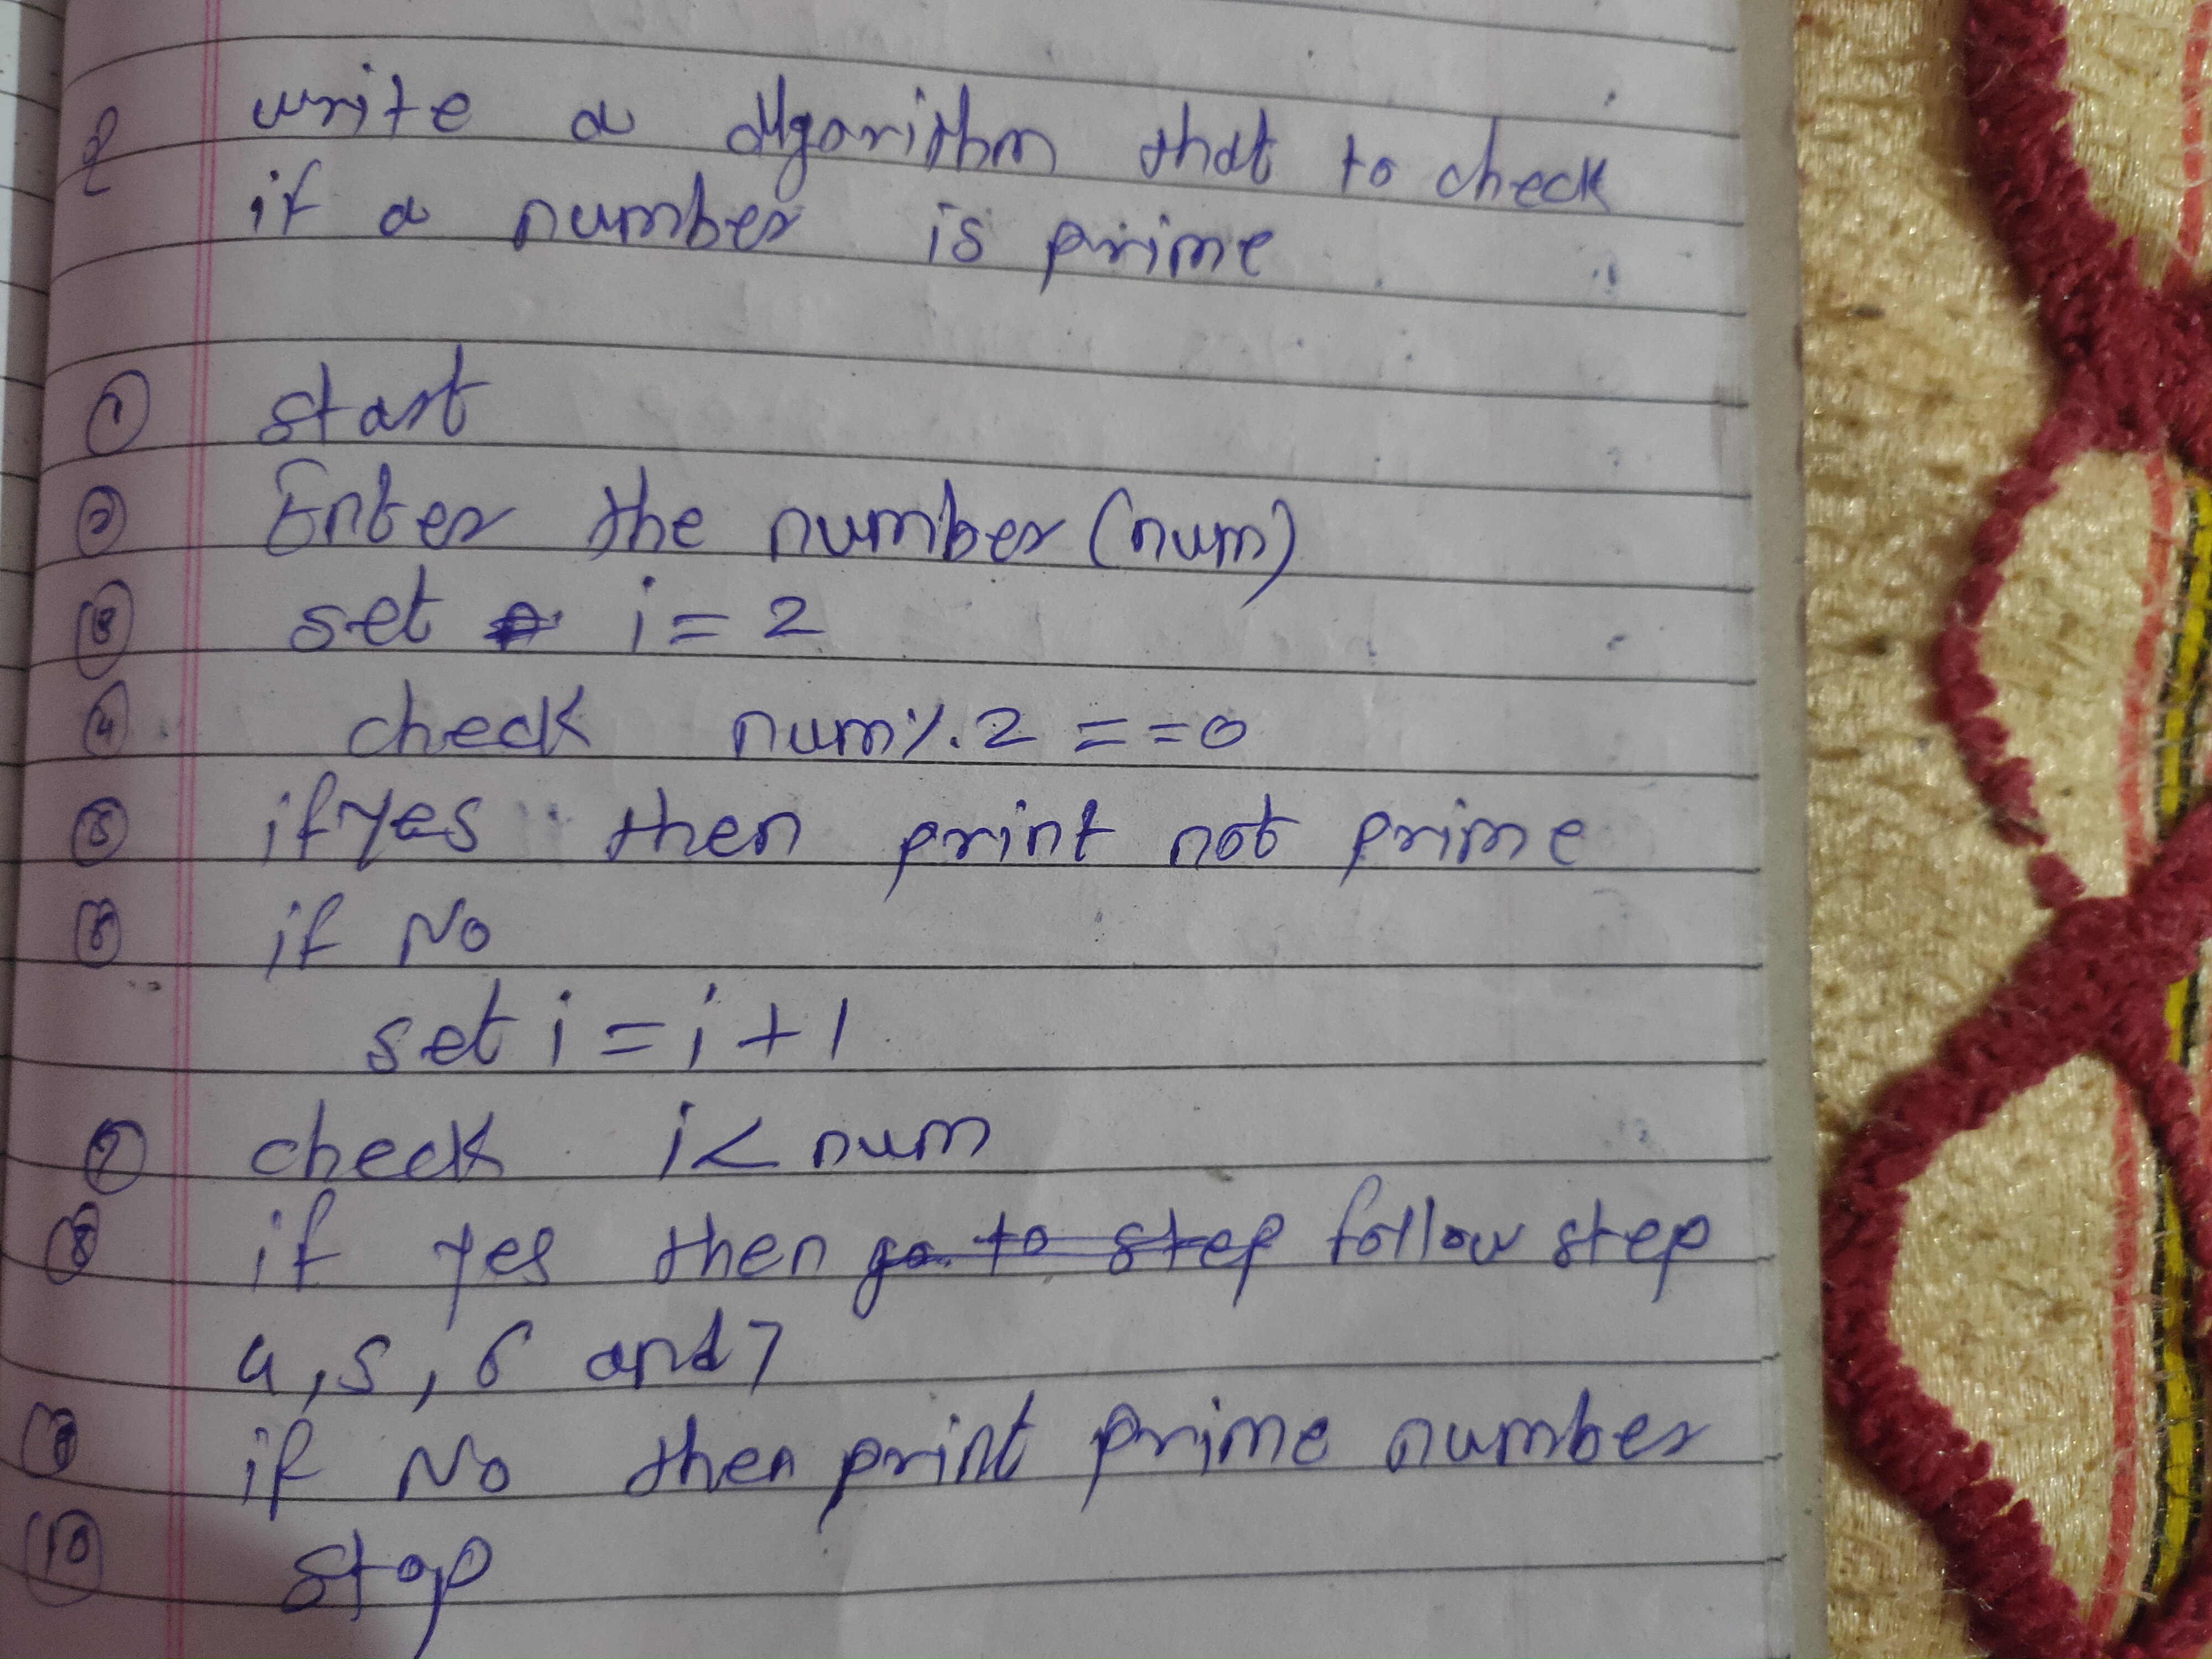 Q write a algorithm that to check
if a number is prime
① start
② Enter the number (num)
③ set i = 2
④ check num % 2 == 0
⑤ if yes then print not prime
⑥ if No
set i = i + 1
⑦ check i < num
⑧ if yes then go to step follow step
4, 5, 6 and 7
⑨ if No then print prime number
⑩ stop